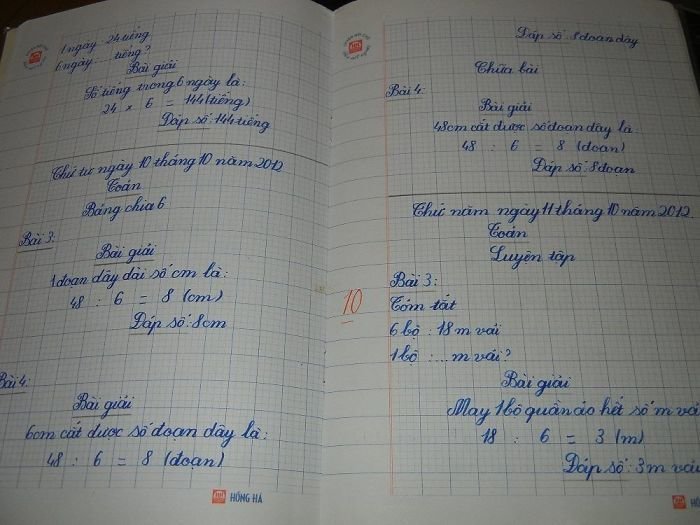 1 ngày 24 tiếng
6 ngày ... tiếng?
Bài giải
Số tiếng trong 6 ngày là:
24 × 6 = 144 (tiếng)
Đáp số: 144 tiếng
Thứ tư ngày 10 tháng 10 năm 2012
Toán
Bảng chia 6
Bài 3:
Bài giải
1 đoạn dây dài số cm là:
48 : 6 = 8 (cm)
Đáp số: 8cm
Bài 4:
Bài giải
6cm cắt được số đoạn dây là:
48 : 6 = 8 (đoạn)
HỒNG HÀ
Đáp số: 8 đoạn dây
Chữa bài
Bài 4:
Bài giải
48cm cắt được số đoạn dây là:
48 : 6 = 8 (đoạn)
Đáp số: 8 đoạn
Thứ năm ngày 11 tháng 10 năm 2012.
Toán
Luyện tập
Bài 3:
10
Tóm tắt
6 bộ : 18 m vải
1 bộ : ... m vải?
Bài giải
May 1 bộ quần áo hết số m vả
18 : 6 = 3 (m)
Đáp số: 3 m vải
HỒ